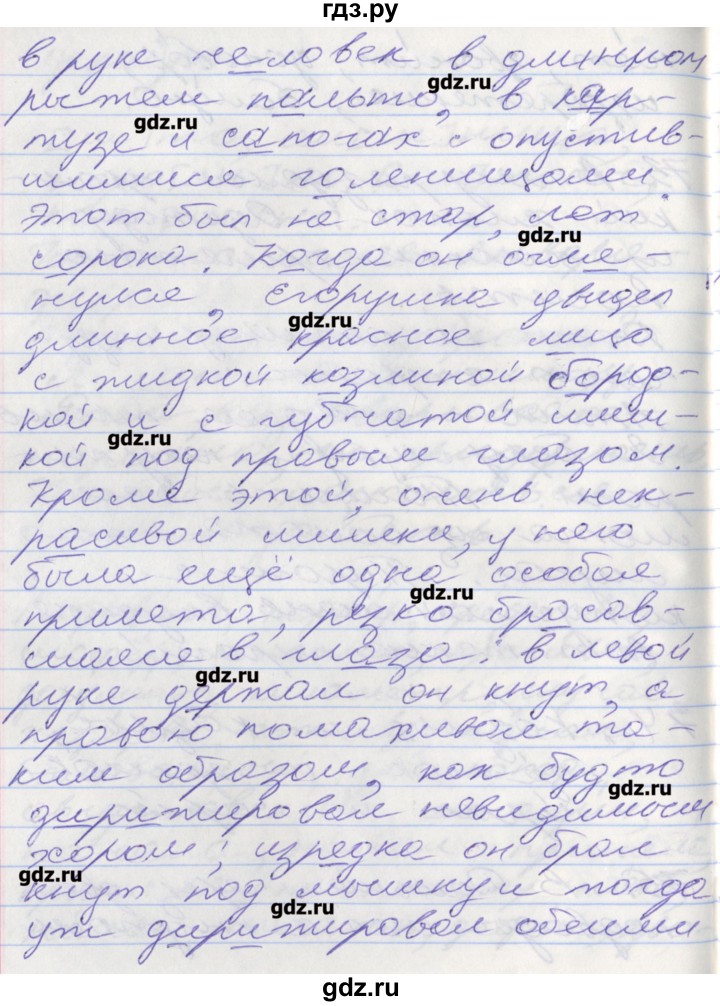 гдз.ру
в руке человек в длинном
gdz.ru
рыжем пальто, в кар-
gdz.ru
тузе и сапогах с опустив-
шимися голенищами.
Этот был не стар, лет
gdz.ru
сорока. Когда он огля-
нулся, Егорушка увидел
gdz.ru
длинное красное лицо
с жидкой козлиной бород-
кой и с губчатой шиш-
gdz.ru
кой под правым глазом.
Кроме этой, очень нек-
расивой шишки, у него
была ещё одна особая
gdz.ru
примета, резко бросав-
шаяся в глаза: в левой
gdz.ru
руке держал он кнут, а
правою помахивал та-
ким образом, как будто
gdz.ru
дирижировал невидимым
хором; изредка он брал
gdz.ru
кнут под мышку и тогда
gdz.ru
уж дирижировал обеими
gdz.ru